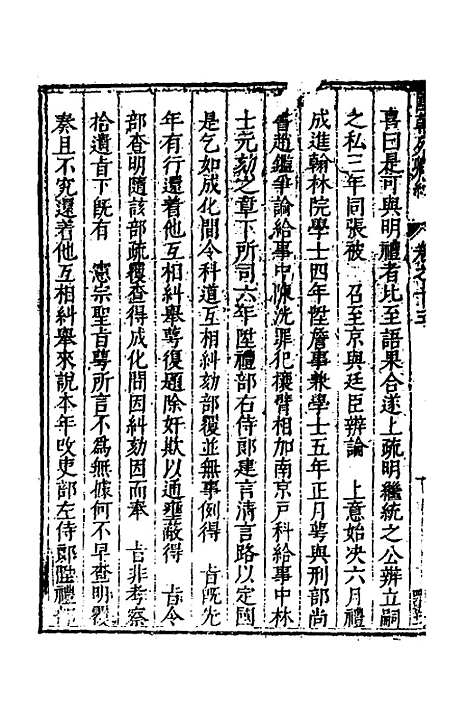 喜曰是可與明禮者比至語果合遂上疏明繼統之公辨立嗣
之私三年同張被　召至京與廷臣辨論　上意始决六月禮
成進翰林院學士四年陞詹事兼學士五年正月萼與刑部尚
書趙鑑爭論給事中陳洸罪犯攘臂相加南京戶科給事中林
士元劾之章下所司六年陞禮部右侍郎建言清言路以定國
是乞如成化間令科道互相糾劾部覆並無事例得　旨旣先
年有行還着他互相糾舉萼復題除奸欺以通壅蔽得　旨令
部查明隨該部疏覆查得成化間因糾劾因而奉　旨非考察
拾遺旨下旣有　憲宗聖旨萼所言不為無據何不早查明覆
奏且不究還着他互相糾舉來說本年攺吏部左侍郎陞禮